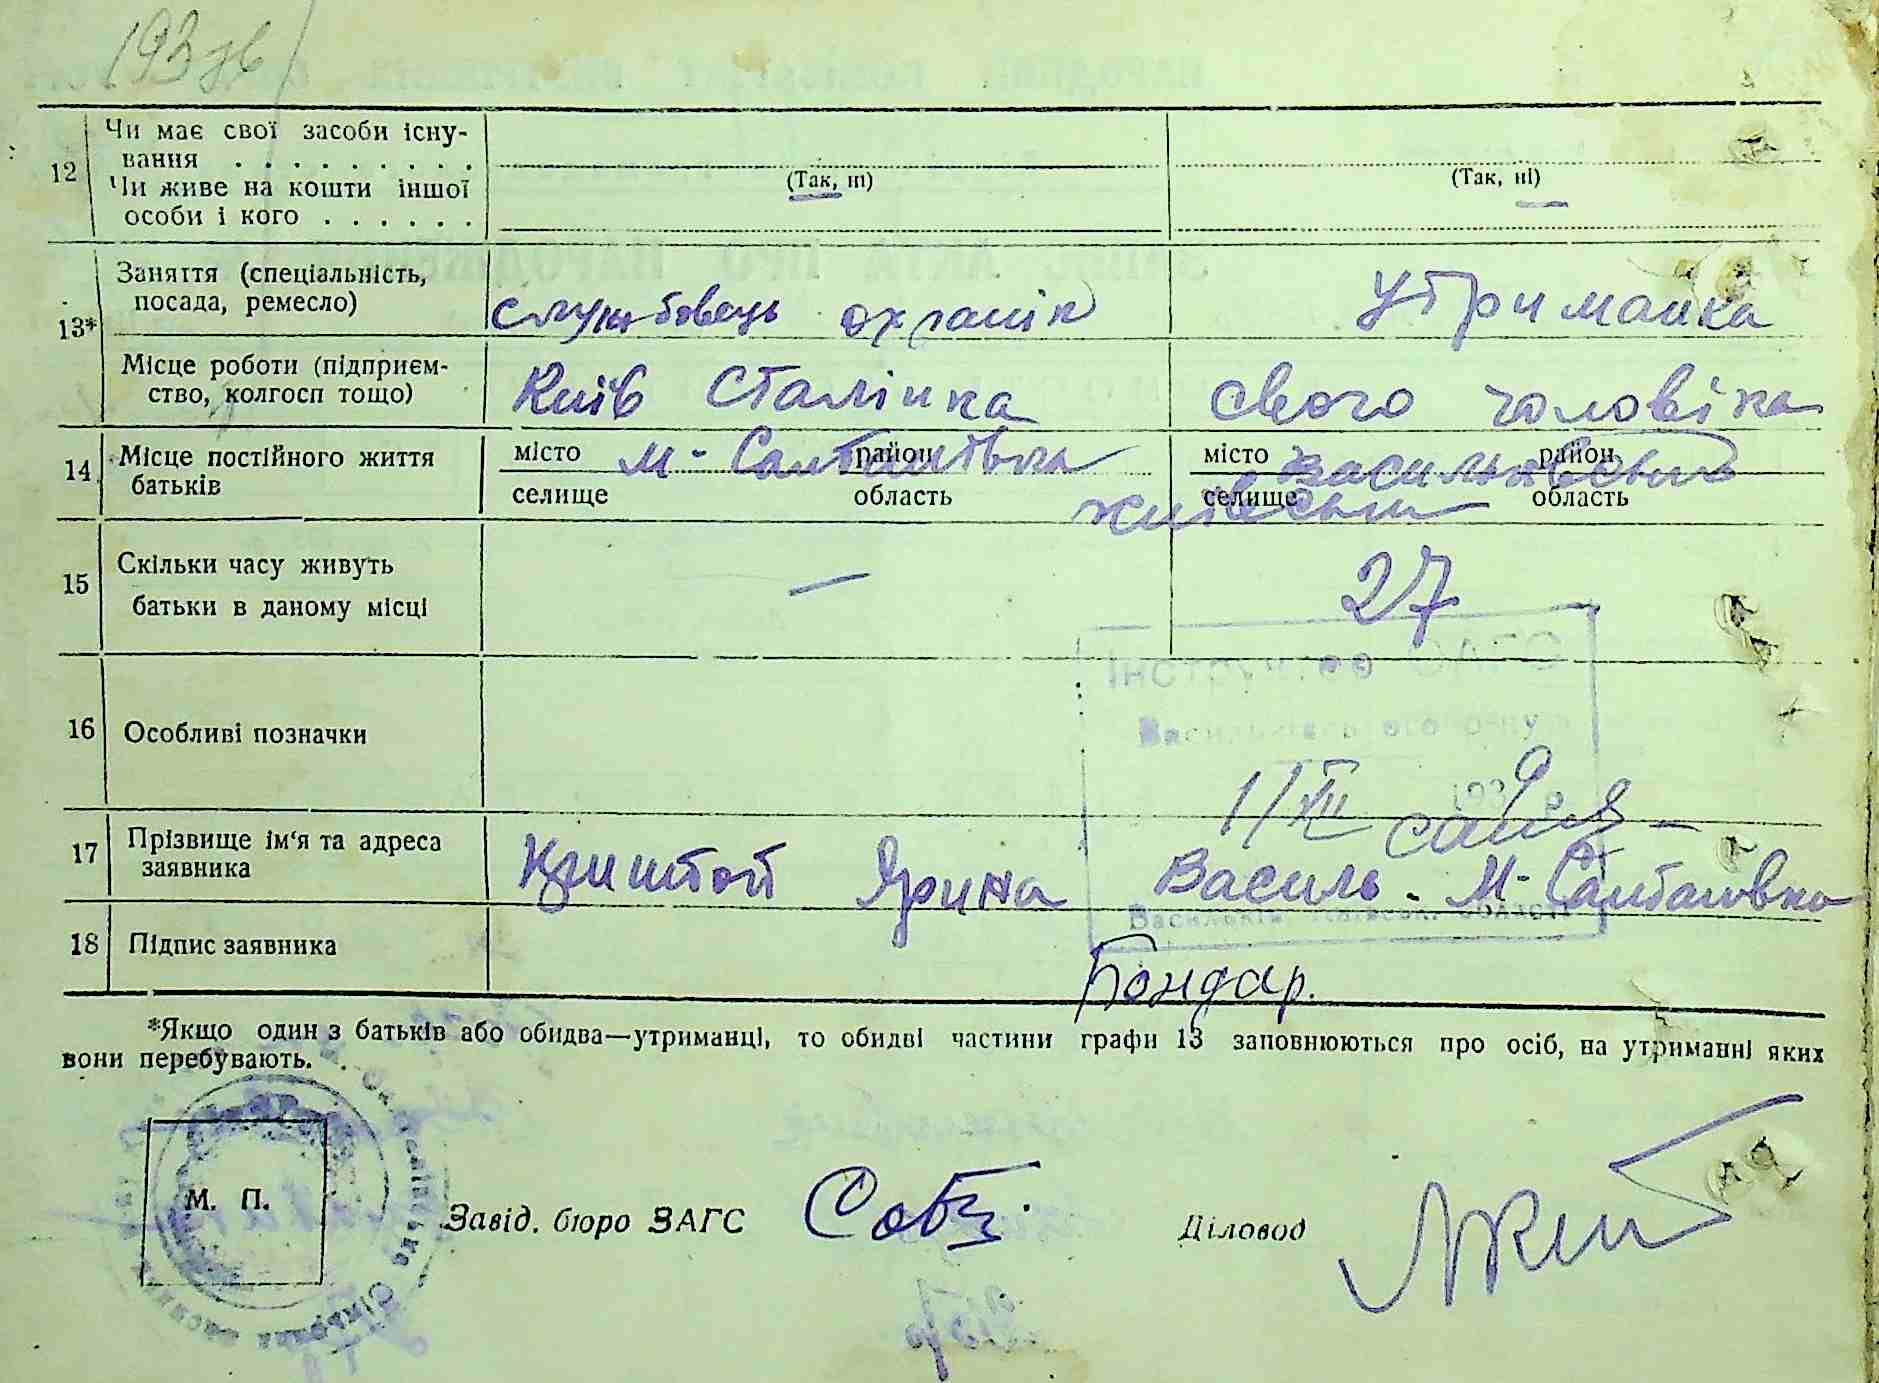 12
Чи має свої засоби існу-
вання . . . . . . . . .
Чи живе на кошти іншої
особи і кого . . . . . .
(Так, ні)
(Так, ні)
13*
Заняття (спеціальність,
посада, ремесло)
службовець охранік
Утриманка
Місце роботи (підприєм-
ство, колгосп тощо)
Київ Сталінка
свого чоловіка
14
Місце постійного життя
батьків
місто район
М-Салтанівка
селище область
місто район
Васильківський
селище область
Київськ
15
Скільки часу живуть
батьки в даному місці
—
27
16
Особливі позначки
Інструктор ЗАГС
1/XII
17
Прізвище ім'я та адреса
заявника
Криштоп Ярина Василь. М-Салтановка
18
Підпис заявника
Бондар.
*Якщо один з батьків або обидва—утриманці, то обидві частини графи 13 заповнюються про осіб, на утриманні яких
вони перебувають.
М. П.
Завід. бюро ЗАГС
Діловод